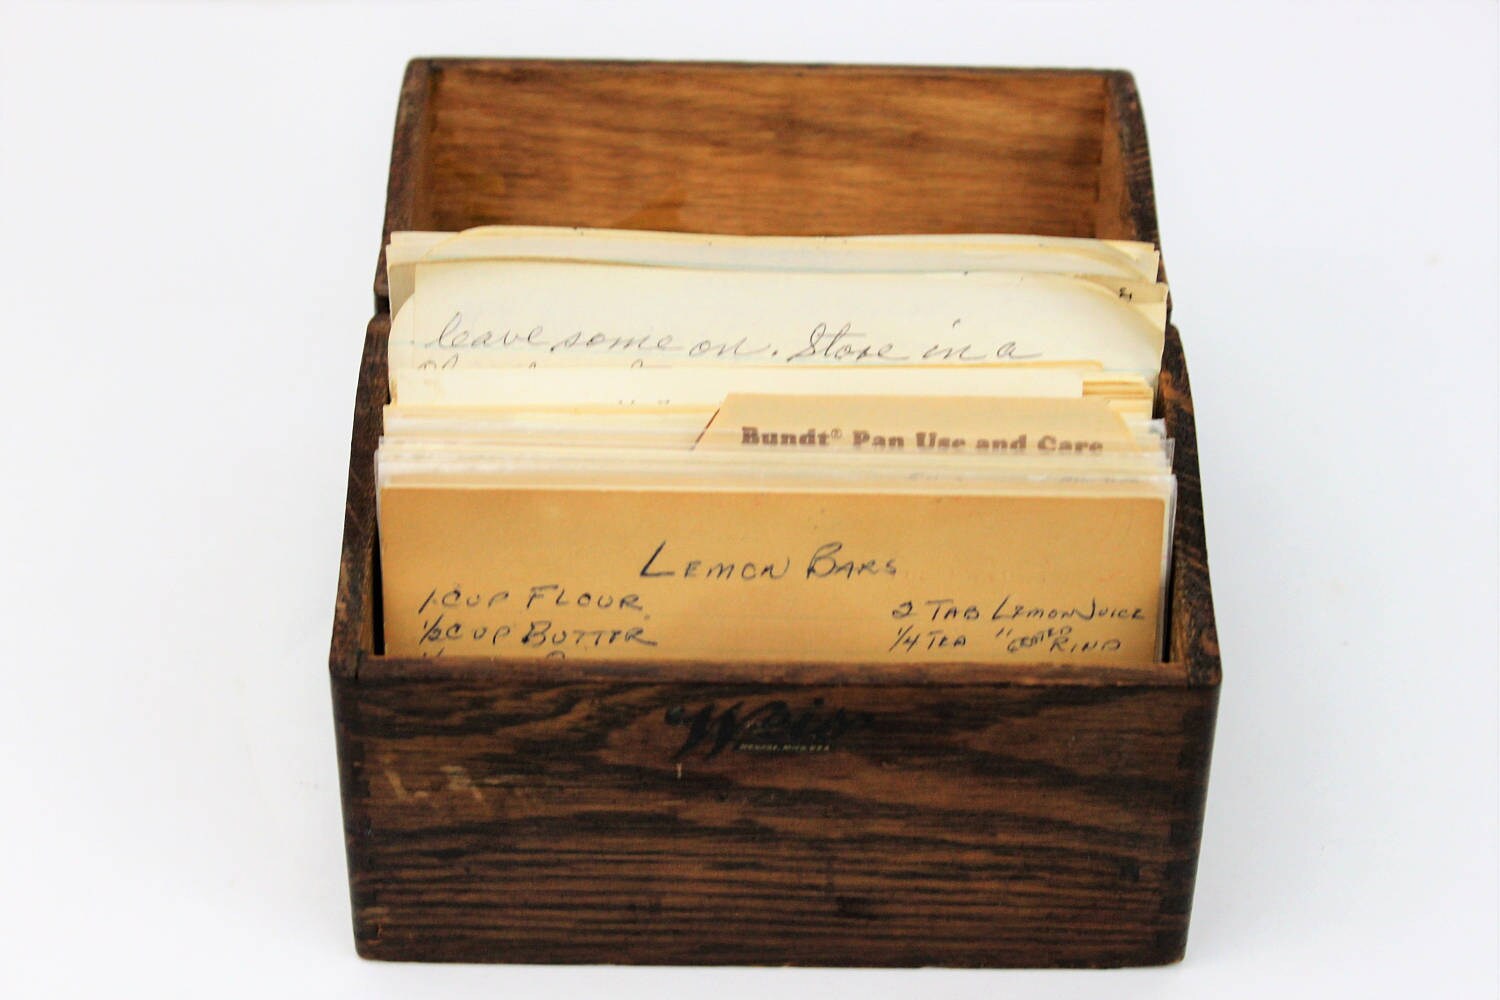 leave some on. Store in a
Bundt® Pan Use and Care
LEMON BARS
1 CUP FLOUR
1/2 CUP BUTTER
2 TAB LEMON JUICE
1/4 TEA " GRATED RIND
Weis
MONROE, MICH. U.S.A.